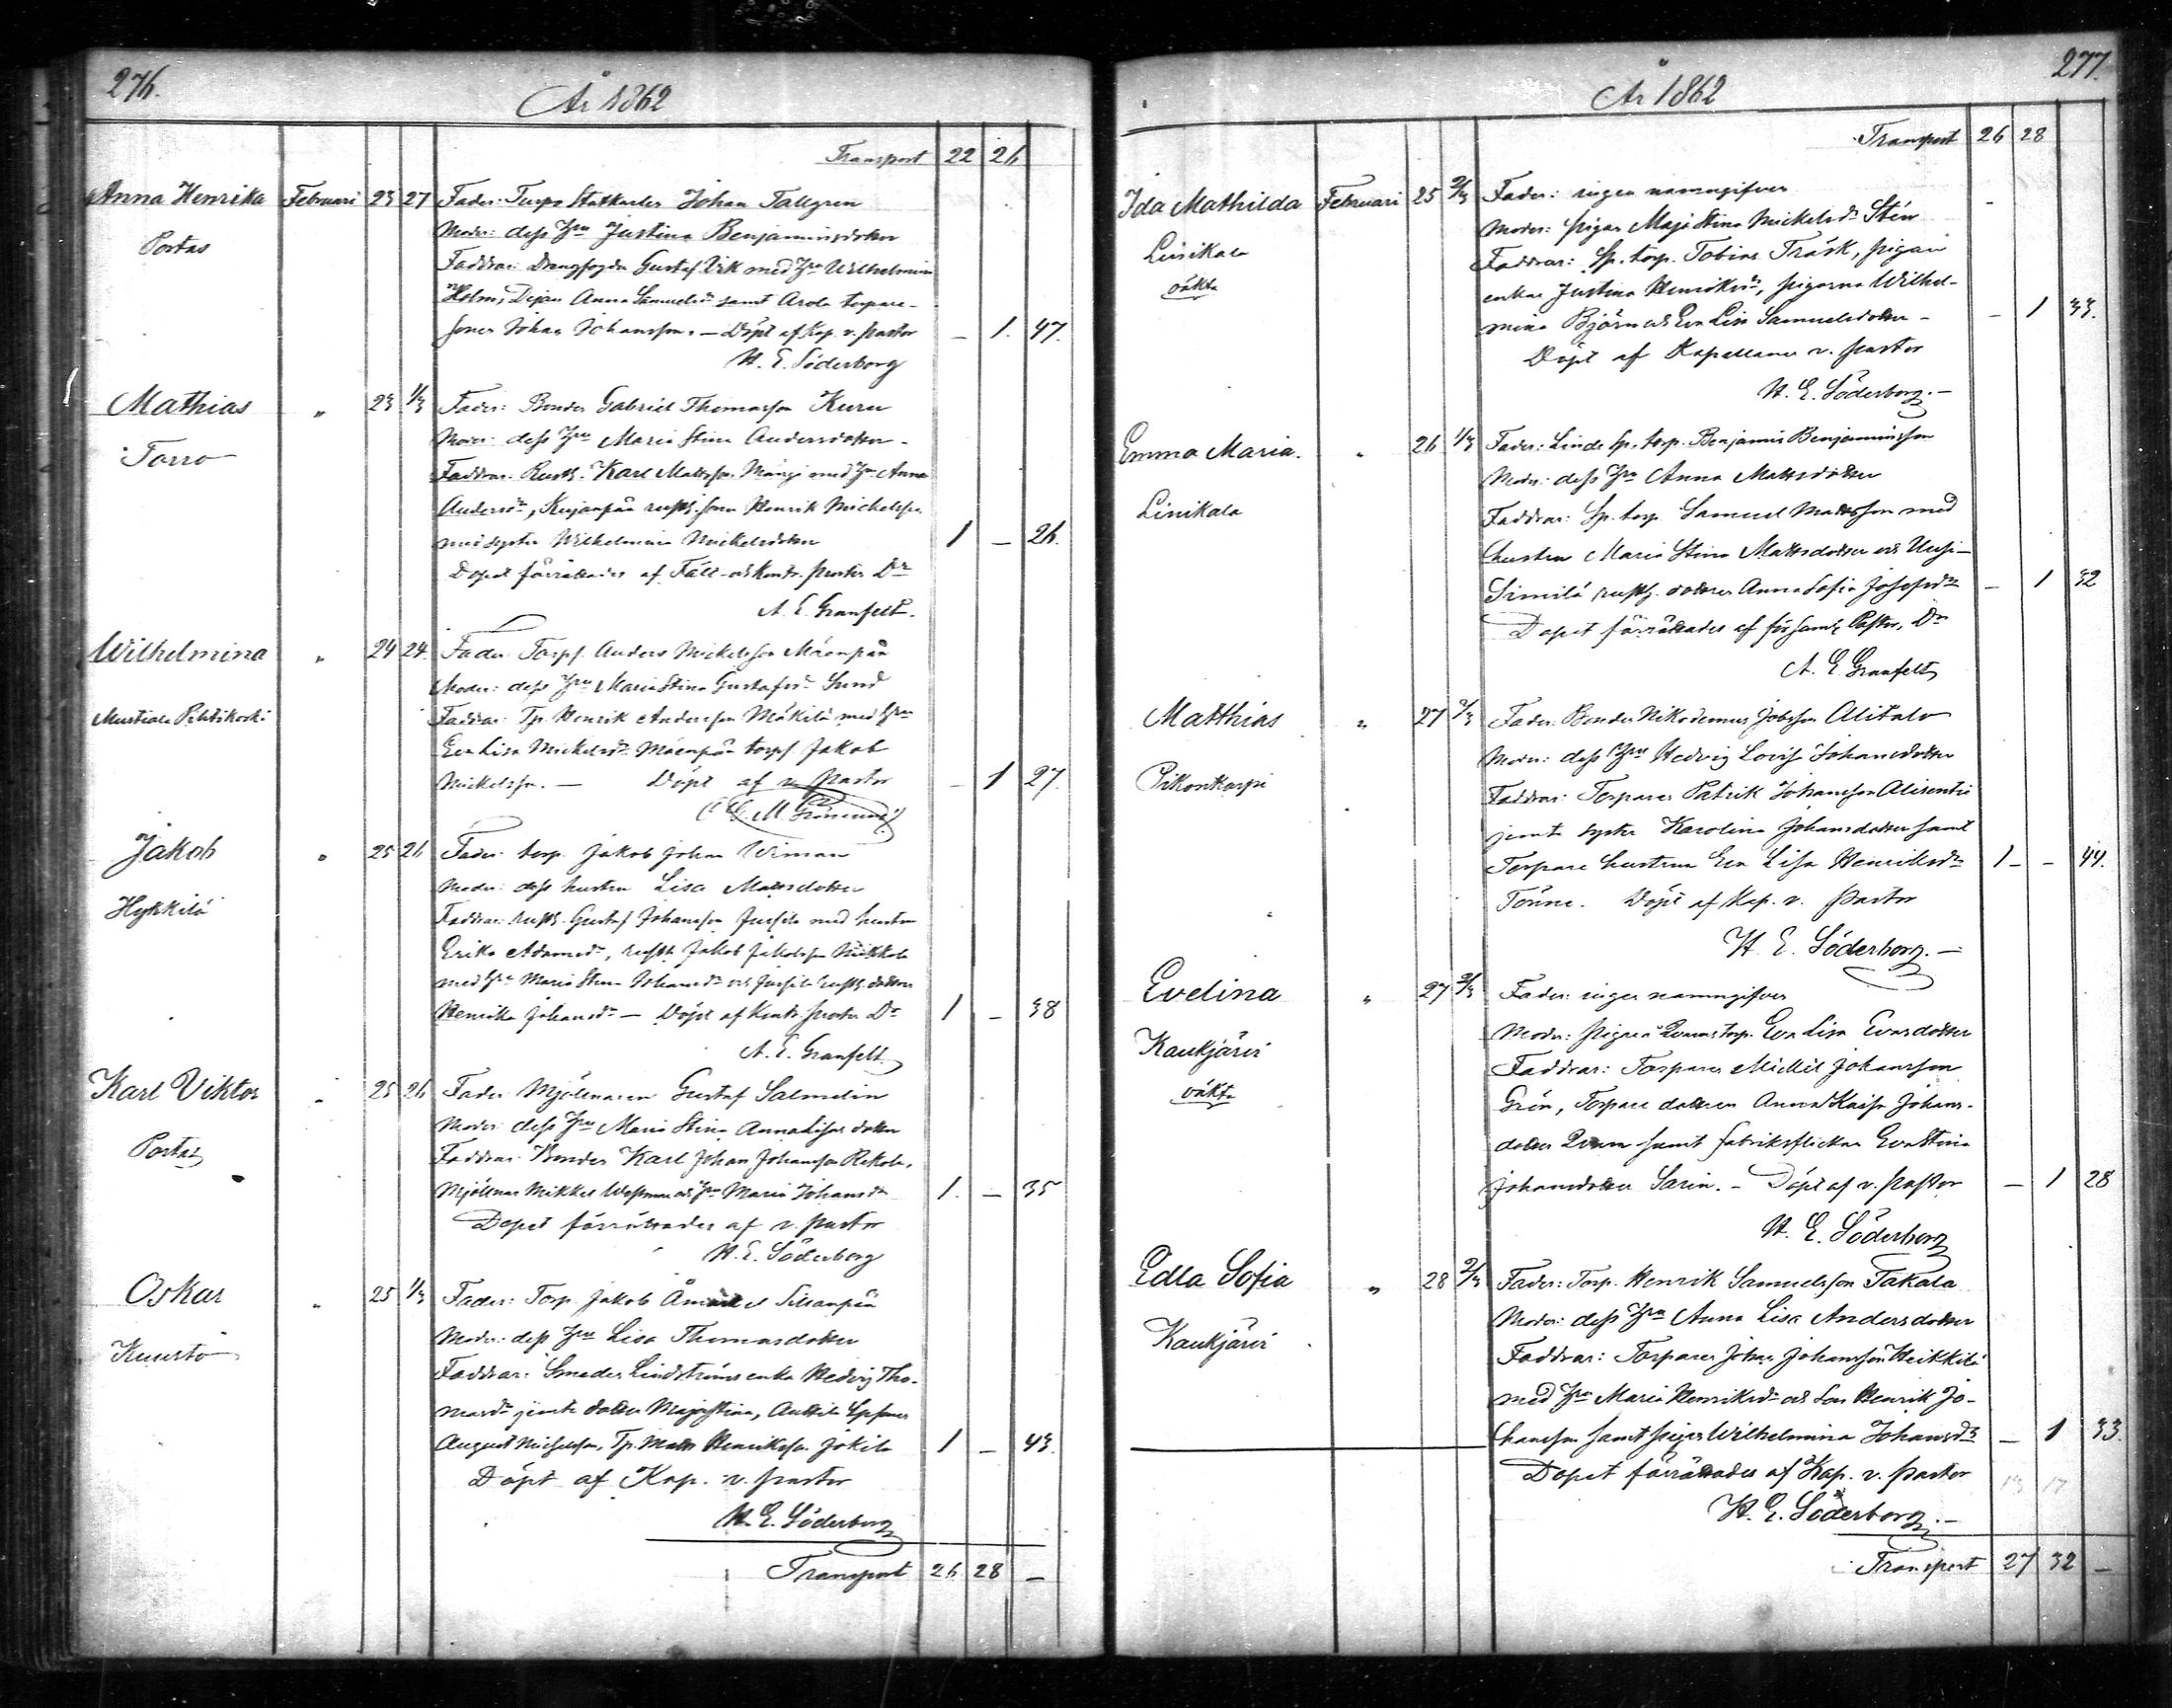 276.
År 1862
Transport 22 26
Anna Henrika Februari 23 27 Fader: Statkarlen Johan Tallgren
Moder: dess Hru Justina Benjaminsdotter
Portas
Faddrar: Drengfogden Gustaf Vik med Hru Wilhelmina
Holm, Dejan Anna Samuelsdr samt Arola torpare-
sonen Johan Johansson. — Döpt af Kap. v. Pastor — 1. 47.
H. E. Söderborg
Mathias " 23 1/3 Fader: Bonden Gabriel Thomasson Kuru
Moder: dess Hru Maria Stina Andersdotter
Torro
Faddrar: Rusth. Karl Mattsson med Hru Anna
Andersdr, rusth. sonen Henrik Michelsson
med syster Wilhelmina Mickelsdotter 1 — 26.
Dopet förrättades af Fält- och Kontr. Prosten Dr
A. E. Granfelt.
Wilhelmina " 24 24. Fader: Torp. Anders Mickelsson Mäenpää
Moder: dess Hru Maria Stina Gustafsdr Sund
Mustiala
Faddrar: Tp. Henrik Andersson Mäkilä med Hru
Eva Lisa Mickelsdr Mäenpää torp. Jakob
Mickelsson. — Döpt af v. Pastor — 1 27.
Jakob " 25 26 Fader: torp. Jakob Johan Wiman
Moder: dess hustru Lisa Mattsdotter
Hykkilä
Faddrar: rusth. Gustaf Johansson Jussila med hustru
Erika Adamsdr, rusth. Jakob Jakobsson
med Hru Maria Stina Johansdr och Jussila rusth. dotter
Henrika Johansdr — Döpt af Kontr. Prosten Dr 1 — 38
A. E. Granfelt
Karl Viktor " 25 26 Fader: Mjölnaren Gustaf Salmelin
Moder: dess Hru Maria Stina Annalisas dotter
Portas
Faddrar: Bonden Karl Johan Johansson Rekola,
Mjölnar Mikkel och Hru Maria Johansdr 1. — 35
Dopet förrättades af v. Pastor
H. E. Söderborg
Oskar " 25 1/3 Fader: Torp. Jakob Sillanpää
Moder: dess Hru Lisa Thomasdotter
Kuusto
Faddrar: Smeden Lindströms enka Hedvig Tho-
masdr jemte dotter Majastina, Anttila
August Michelsson, Tp. Matts Henriksson Jokila 1 — 43.
Döpt af Kap. v. Pastor
H. E. Söderborg
Transport 26 28 —
277.
År 1862
Transport 26 28
Ida Mathilda Februari 25 2/3 Fader: ingen namngifven
Moder: pigan Maja Stina Mickelsdr Stén
Liesikala
Faddrar: Sp. torp. Tobias Träsk, pigan
oäkta
enkan Justina Henriksdr, pigorna Wilhel-
mina Björn och Eva Lisa Samuelsdotter — — 1 33.
Döpt af Kapellanen v. Pastor
H. E. Söderborg. —
Emma Maria. " 26 1/3 Fader: Linde Sp. torp. Benjamin Benjaminsson
Moder: dess Hru Anna Mattsdotter
Linikala
Faddrar: Sp. torp. Samuel Mattsson med
hustru Maria Stina Mattsdotter och Uusi-
Simila rusth. dotter Anna Sofia Josefsdr — 1 32
Dopet förrättades af församl. Pastor, Dr
A. E. Granfelt
Matthias " 27 2/3 Fader: Bonden Nikodemus Jobsson Alitalo
Moder: dess Hru Hedvig Lovisa Johansdotter
Pikonkorpi
Faddrar: Torparen Patrik Johansson
jemte syster Karolina Johansdotter samt
Torpare hustrun Eva Lisa Henriksdr 1 — — 44.
Tönne. Döpt af Kap. v. Pastor
H. E. Söderborg. —
Evelina " 27 2/3 Fader: ingen namngifven
Moder: Pigan Eva Lisa Evasdotter
Kaukjärvi
Faddrar: Torparen Mickel Johansson
oäkta
Grön, Torpare dottren Anna Kaisa Johans-
dotter Qvarn samt fabriksflickan Eva Stina
Johansdotter Sarin. — Döpt af v. Pastor — 1 28
H. E. Söderborg
Edla Sofia " 28 2/3 Fader: Torp. Henrik Samuelsson Takala
Moder: dess Hru Anna Lisa Andersdotter
Kaukjärvi
Faddrar: Torparen Johan Johansson Heikkilä
med Hru Maria Henriksdr och Son Henrik Jo-
hansson samt pigan Wilhelmina Johansdr — 1 33.
Dopet förrättades af Kap. v. Pastor
H. E. Söderborg. —
Transport 27 32 —